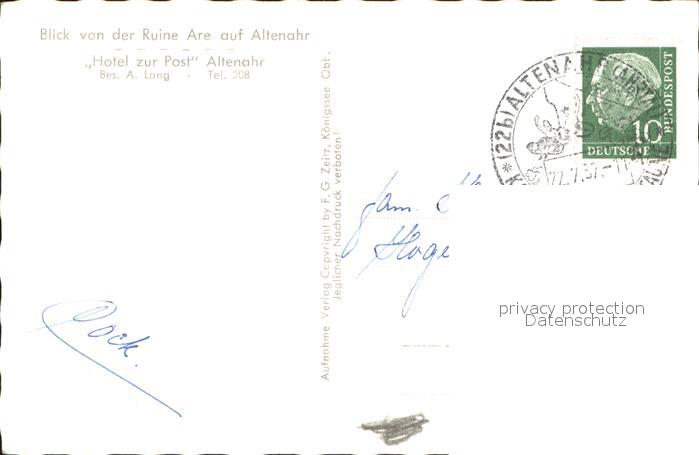 Blick von der Ruine Are auf Altenahr
„Hotel zur Post" Altenahr
Bes. A. Lang · Tel. 208
Aufnahme Verlag Copyright by F. G. Zeitz, Königssee Obb.
Jeglicher Nachdruck verboten!
(22b) ALTENAHR (AHR)
22.7.57.-11
10
DEUTSCHE
BUNDESPOST
Fam.
Hoge
Cock.
privacy protection
Datenschutz